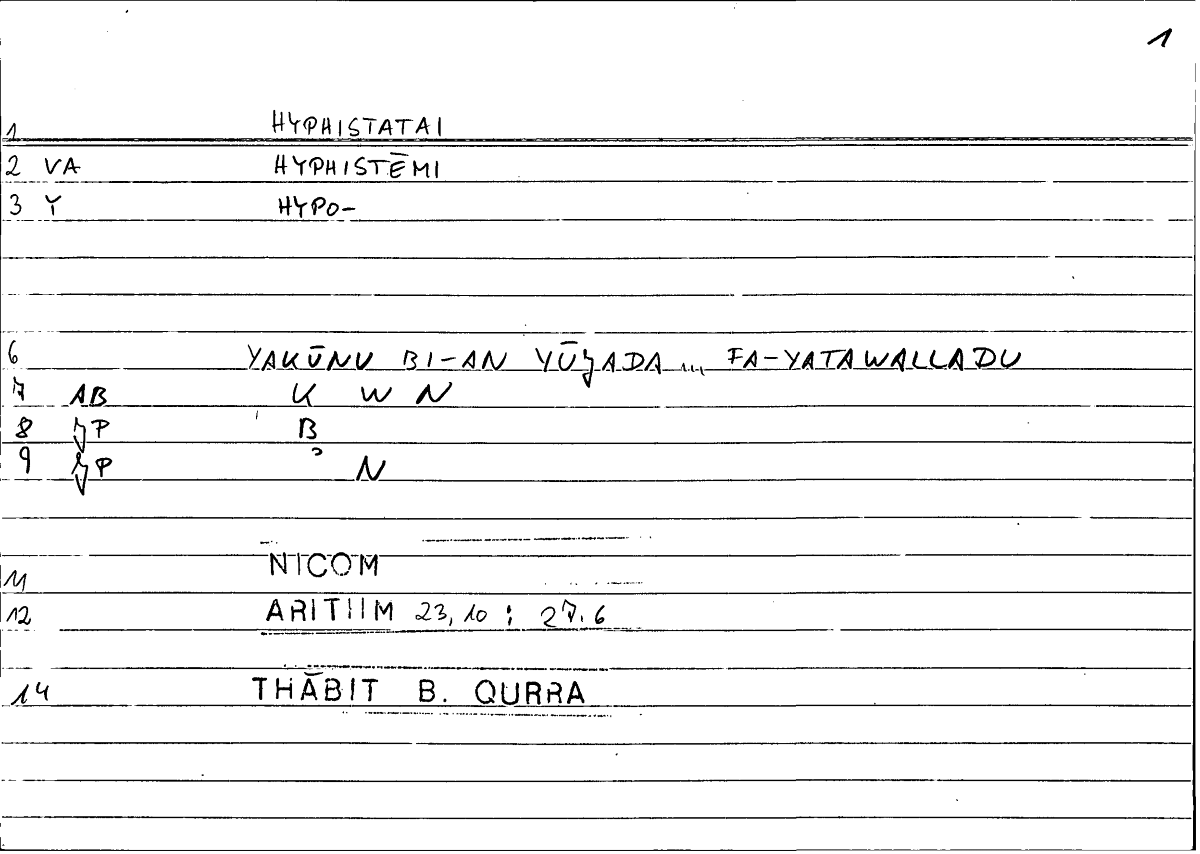 1
1 HYPHISTATAI
2 VA HYPHISTĒMI
3 Y HYPO-
6 YAKŪNU BI-AN YŪǦADA ... FA-YATAWALLADU
7 AB K W N
8 JP B
9 JP ʾ N
11 NICOM
12 ARITHM 23,10 : 27.6
14 THĀBIT B. QURRA